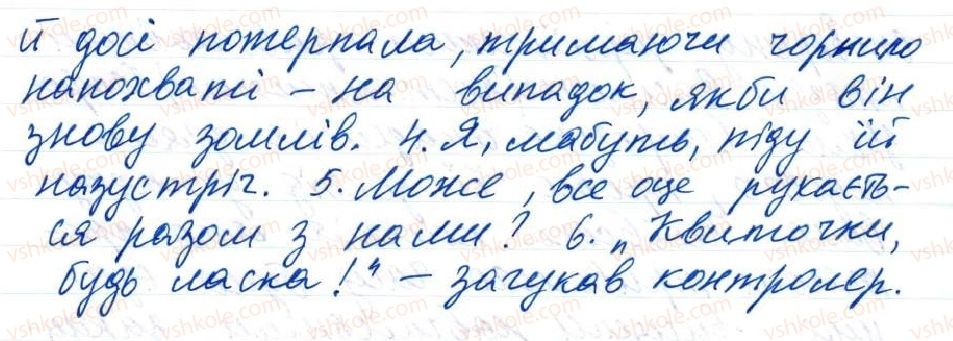 й досі потерпала, тримаючи чорнило
напохваті – на випадок, якби він
знову зомлів. 4. Я, мабуть, піду їй
назустріч. 5. Може, все оце рухаєть-
ся разом з нами? 6. „Квиточки,
будь ласка!" – загукав контролер.